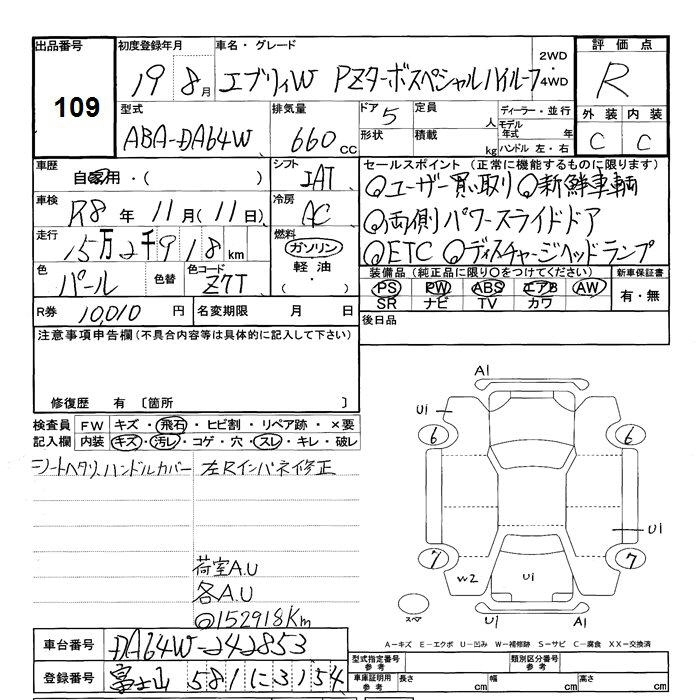 出品番号 初度登録年月 車名・グレード 2WD 4WD 評価点
109 19 8月 エブリィW PZターボスペシャルハイルーフ R
型式 排気量 ドア 5 定員 人 ディーラー・並行 外装 内装
ABA-DA64W 660cc 形状 積載 kg モデル年式 年 ハンドル 左・右 C C
車歴 自家用・( ) シフト IAT セールスポイント (正常に機能するものに限ります)
◎ユーザー買い取り ◎新鮮車輌
車検 R8年 11月(11日) 冷房 AC ◎両側パワースライドドア
走行 15万2千918km 燃料 ガソリン 軽油・( ) ◎ETC ◎ディスチャージヘッドランプ
色 パール 色替 色コード Z7T 装備品 (純正品に限り○をつけてください) 新車保証書
PS PW ABS エアB AW 有・無
SR ナビ TV カワ
R券 10,010円 名変期限 月 日 後日品
注意事項申告欄 (不具合内容等は具体的に記入して下さい)
修復歴 有 〔箇所 〕
検査員 FW キズ・飛石・ヒビ割・リペア跡・×要
記入欄 内装 キズ・汚レ・コゲ・穴・スレ・キレ・破レ
シートヘタリ、ハンドルカバー 左Rインパネ修正
荷室A.U
各A.U
◎152918Km
A1
U1
6 6
U1
7 7
W2 U1
スペア U1 A1
A-キズ E-エクボ U-凹み W-補修跡 S-サビ C-腐食 XX-交換済
車台番号 DA64W-242853
型式指定番号 参考 類別区分番号 参考
登録番号 富士山 581 に 3154
車庫証明用 参考 長さ cm 幅 cm 高さ cm